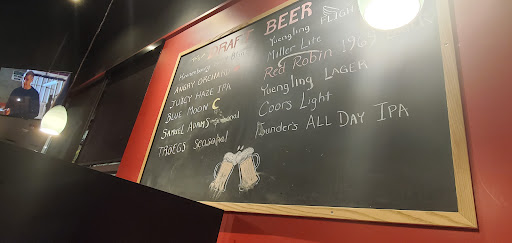 DRAFT BEER
ANGRY ORCHARD
JUICY HAZE IPA
BLUE MOON
SAMUEL ADAMS seasonal
TROEGS Seasonal
Yuengling FLIGHT
Miller Lite
Red Robin 1969
Yuengling LAGER
Coors Light
Founder's ALL DAY IPA